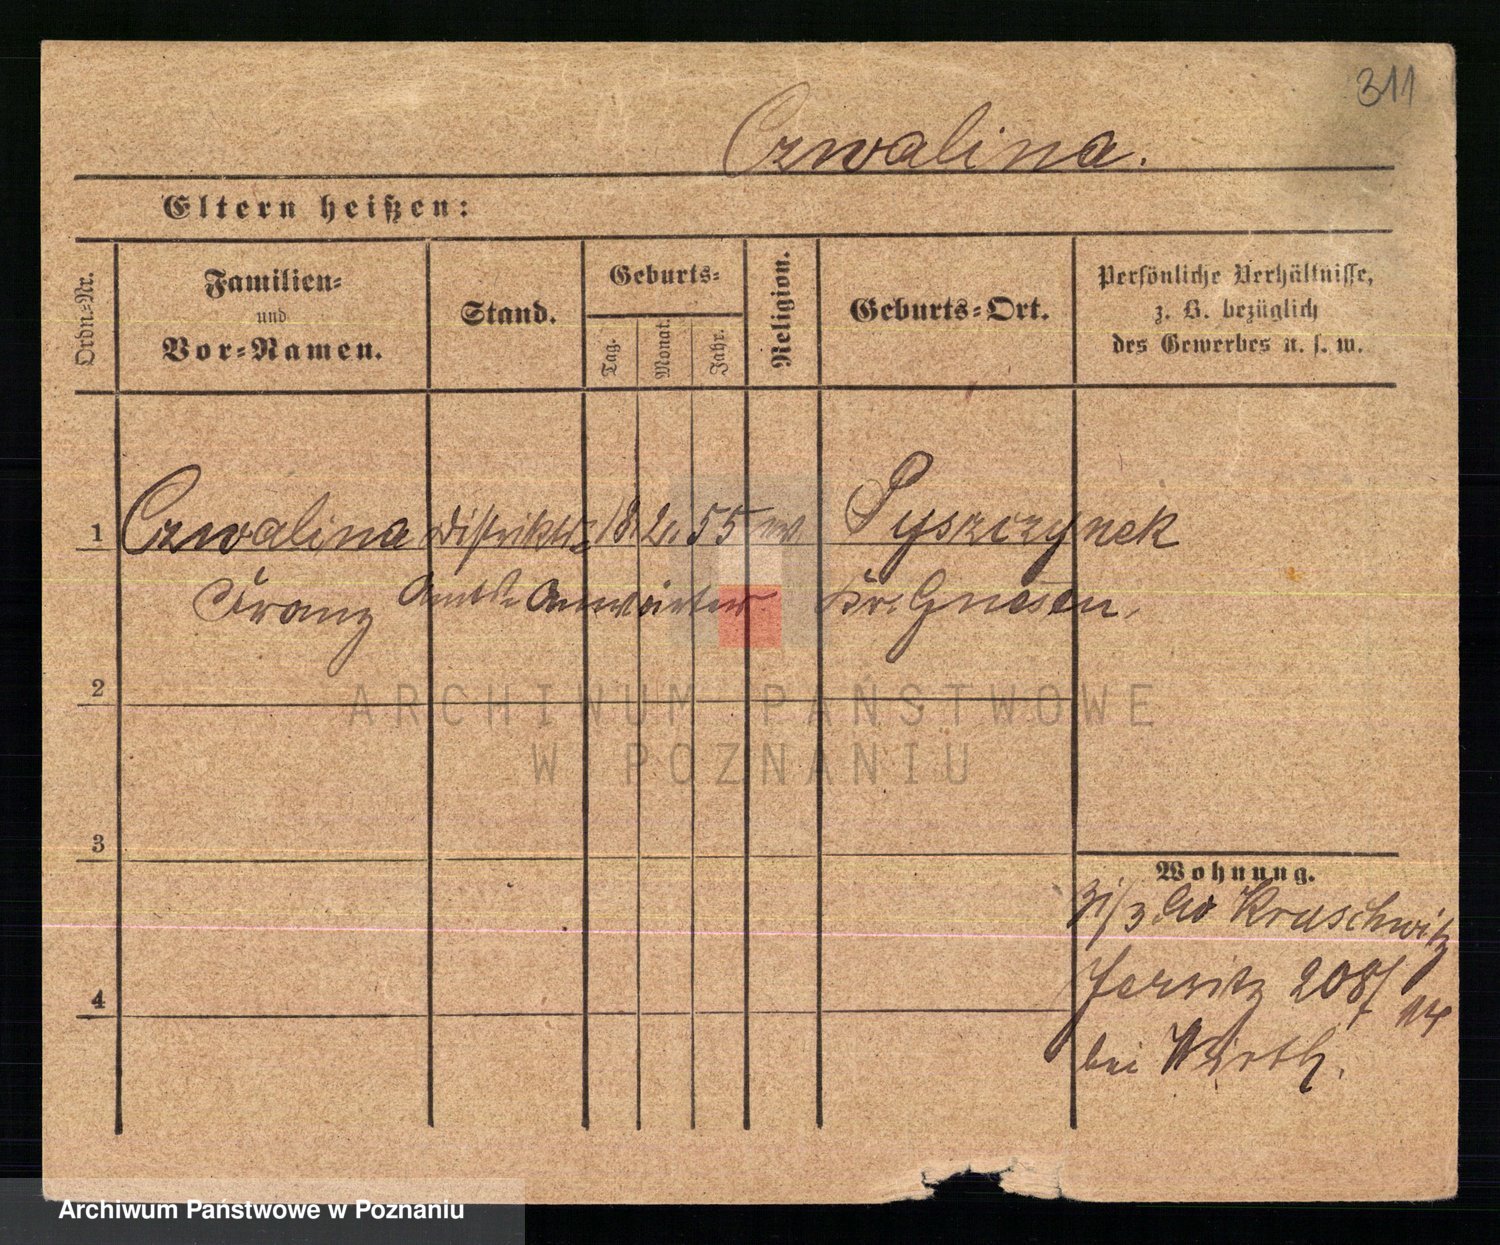 311
Czwalina.
Eltern heißen:
Ordn=Nr.
Familien=
und
Vor=Namen.
Stand.
Geburts=
Tag.
Monat.
Jahr.
Religion.
Geburts=Ort.
Persönliche Verhältnisse,
z. B. bezüglich
des Gewerbes u. s. w.
1 Czwalina Distrikts= 18. 2. 55 Pyszczynek
Franz Amts= Anwärter Kr. Gnesen.
2
3
4
Wohnung.
31/3 Kruschwitz
Jersitz 208/ 14
bei Wirth.
ARCHIWUM PAŃSTWOWE
W POZNANIU
Archiwum Państwowe w Poznaniu